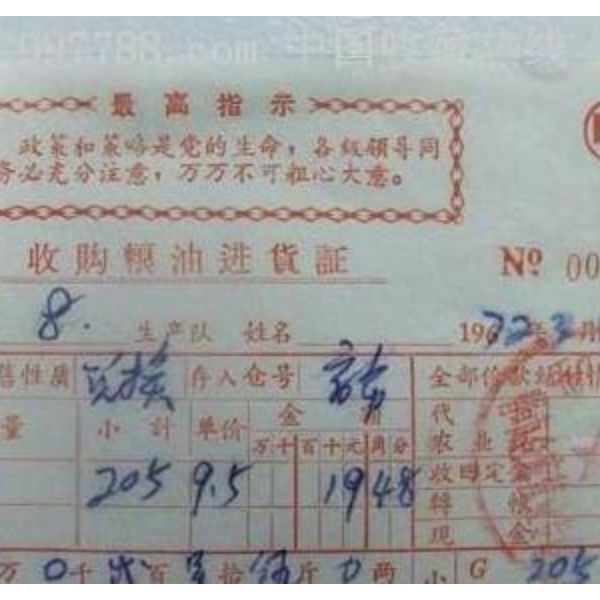 997788.com 中国收藏热线
最高指示
政策和策略是党的生命，各级领导同
务必充分注意，万万不可粗心大意。
收购粮油进货証
Nº 00
8. 生产队 姓名 1972年3月
售性质 兑换 存入仓号
量 小计 单价 金 万千百十元角分
代
农业
205 9.5 19 48
现金
万0千贰百零拾伍斤0两 小 G 205